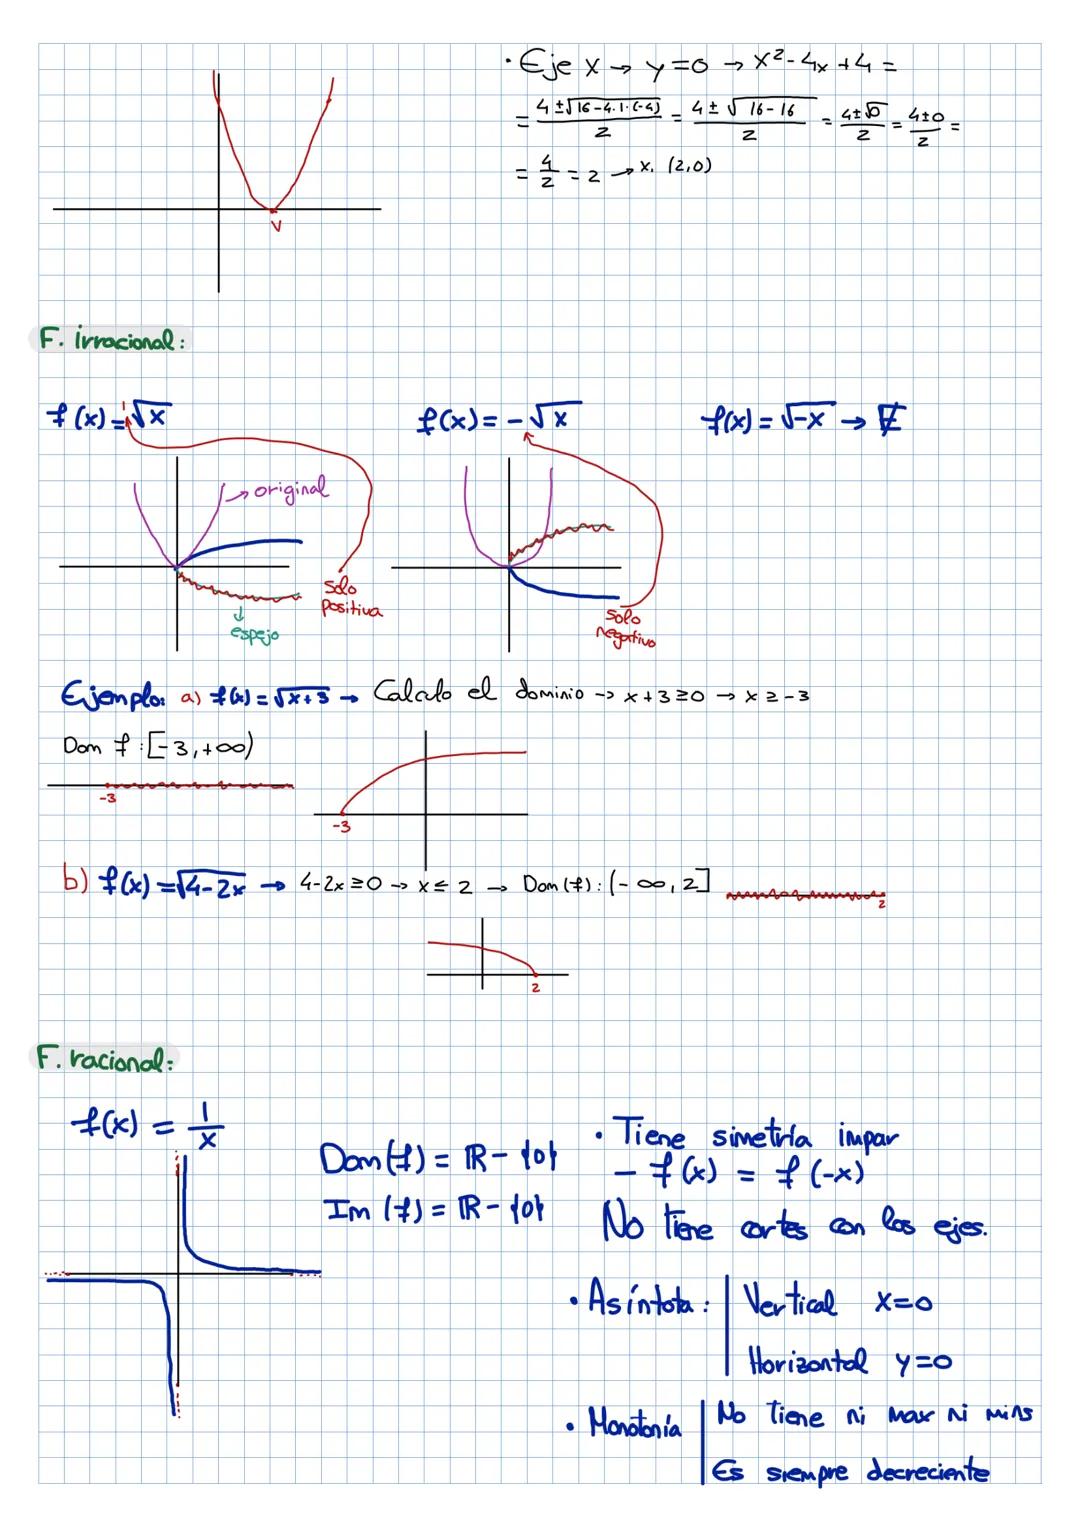 · Eje x → y=0 → x²-4x+4 =
= (4±√16-4·1·(-4))/2 = (4±√16-16)/2 = (4±√0)/2 = (4±0)/2 =
= 4/2 = 2 → x, (2,0)
V
F. irracional:
f(x)=√x
f(x)= -√x
f(x)= √-x → ∄
1
→ original
solo
positiva
↓
espejo
solo
negativo
Ejemplo: a) f(x)=√x+3 → Calculo el dominio → x+3≥0 → x≥-3
Dom f:[-3,+∞)
-3
-3
b) f(x)=√4-2x → 4-2x≥0 → x≤2 → Dom(f):(-∞,2]
2
2
F. racional:
f(x) = 1/x
· Tiene simetría impar
Dom(f) = ℝ-{0}
- f(x) = f(-x)
Im(f) = ℝ-{0}
No tiene cortes con los ejes.
· Asíntota: | Vertical x=0
Horizontal y=0
· Monotonía | No tiene ni max ni mins
Es siempre decreciente